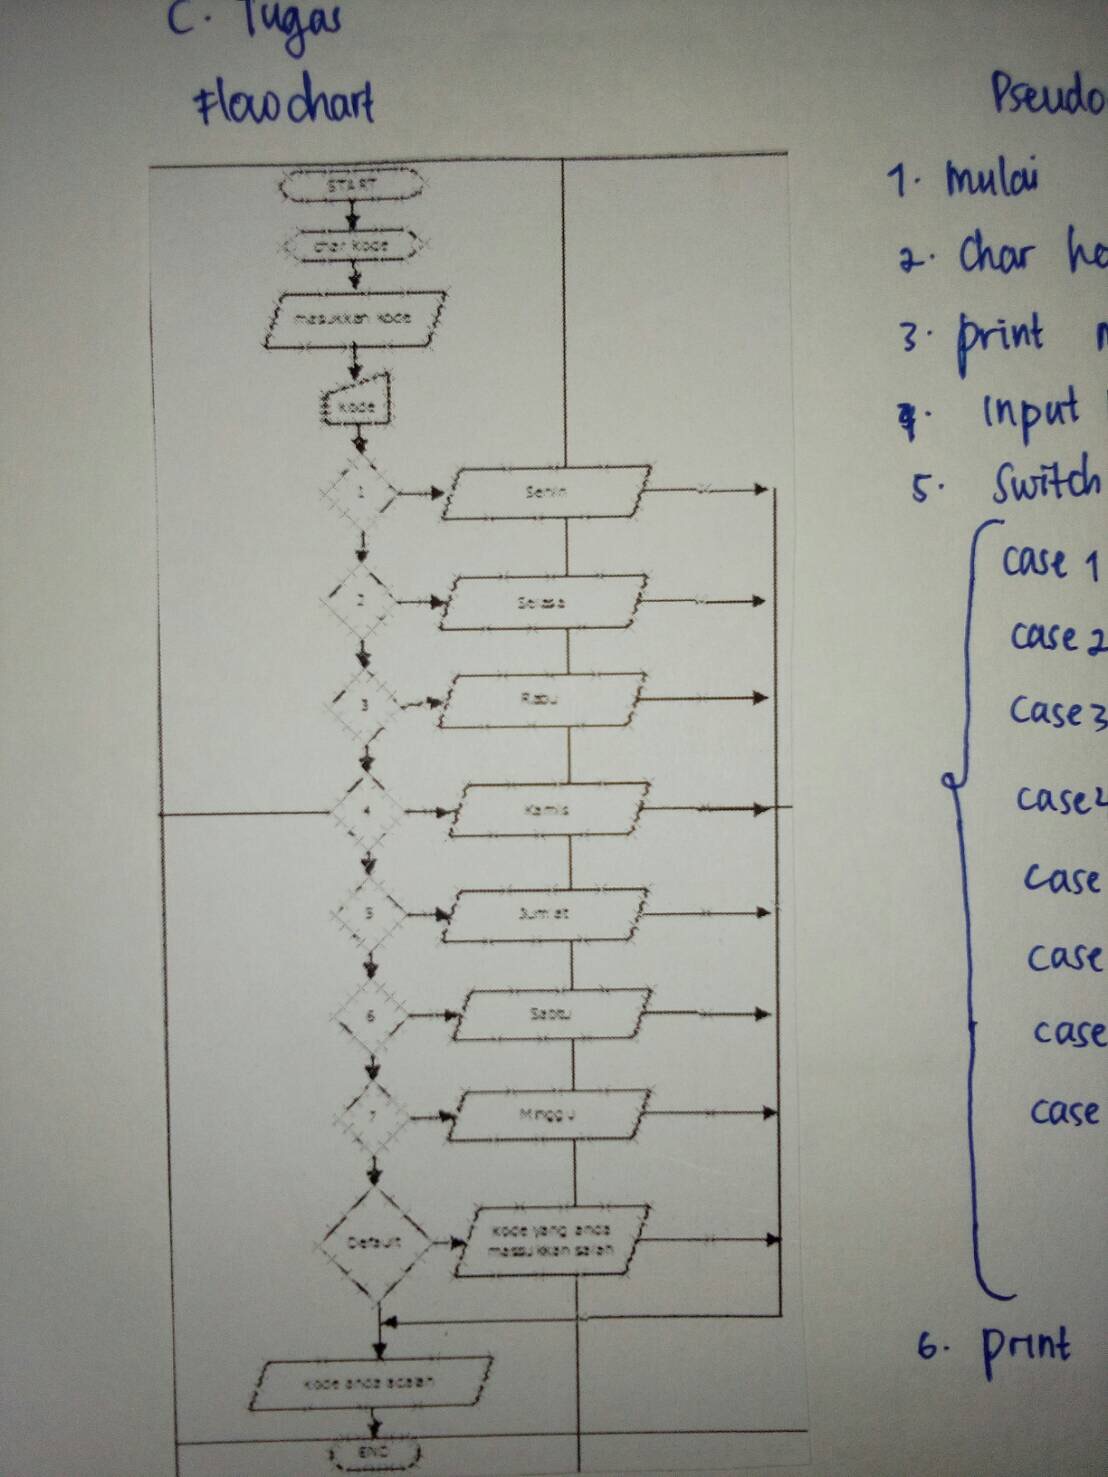 C. Tugas
Flowchart
START
char kode
masukkan kode
kode
1
Senin
2
Selasa
3
Rabu
4
Kamis
5
Jum'at
6
Sabtu
7
Minggu
Default
Kode yang anda
massukkan salah
kode anda adalah
END
Pseudo
1. mulai
2. Char
3. print
4. Input
5. Switch
case 1
case 2
case 3
case 4
case
case
case
case
6. print